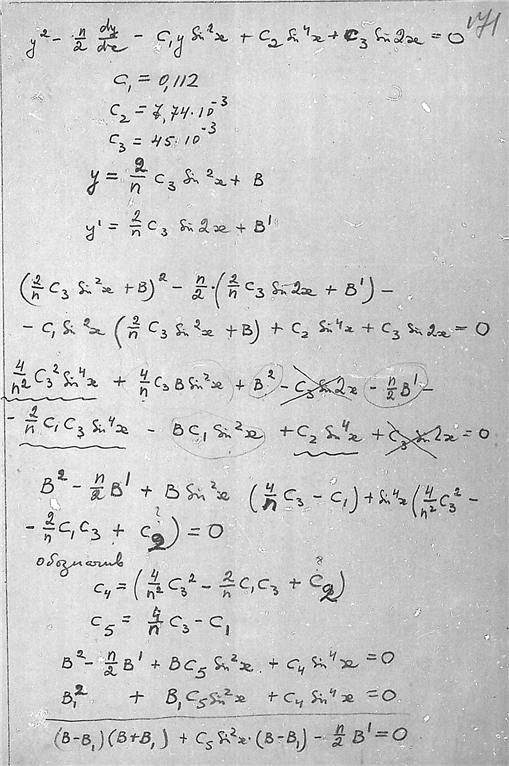 171
y² - n/2 dy/dx - C₁y Sin²x + C₂ Sin⁴x + C₃ Sin2x = 0
C₁ = 0,112
C₂ = 7,74·10⁻³
C₃ = 45·10⁻³
y = 2/n C₃ Sin²x + B
y' = 2/n C₃ Sin2x + B'
(2/n C₃ Sin²x + B)² - n/2·(2/n C₃ Sin2x + B') -
- C₁ Sin²x (2/n C₃ Sin²x + B) + C₂ Sin⁴x + C₃ Sin2x = 0
4/n² C₃² Sin⁴x + 4/n C₃ B Sin²x + B² - C₃ Sin2x - n/2 B' -
- 2/n C₁C₃ Sin⁴x - BC₁ Sin²x + C₂ Sin⁴x + C₃ Sin2x = 0
B² - n/2 B' + B Sin²x (4/n C₃ - C₁) + Sin⁴x (4/n² C₃² -
- 2/n C₁C₃ + C₂) = 0
?
обозначив
?
C₄ = (4/n² C₃² - 2/n C₁C₃ + C₂)
C₅ = 4/n C₃ - C₁
B² - n/2 B' + BC₅ Sin²x + C₄ Sin⁴x = 0
B₁² + B₁C₅ Sin²x + C₄ Sin⁴x = 0
(B-B₁)(B+B₁) + C₅ Sin²x·(B-B₁) - n/2 B' = 0